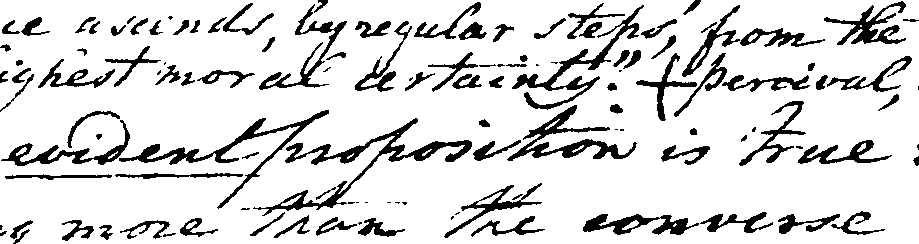 ce ascends, by regular steps, from the
ighest moral certainty." + Percival,
evident proposition is true
more than the converse